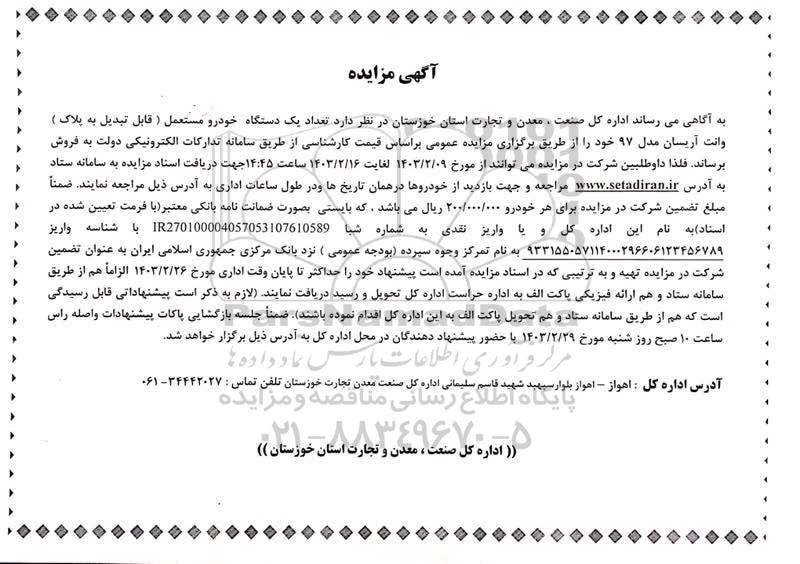 آگهی مزایده
به آگاهی می رساند اداره کل صنعت ، معدن و تجارت استان خوزستان در نظر دارد تعداد یک دستگاه خودرو مستعمل ( قابل تبدیل به پلاک )
وانت آریسان مدل ۹۷ خود را از طریق برگزاری مزایده عمومی براساس قیمت کارشناسی از طریق سامانه تدارکات الکترونیکی دولت به فروش
برساند. فلذا داوطلبین شرکت در مزایده می توانند از مورخ ۱۴۰۳/۲/۰۹ لغایت ۱۴۰۳/۲/۱۶ ساعت ۱۴:۴۵جهت دریافت اسناد مزایده به سامانه ستاد
به آدرس www.setadiran.ir مراجعه و جهت بازدید از خودروها درهمان تاریخ ها ودر طول ساعات اداری به آدرس ذیل مراجعه نمایند. ضمناً
مبلغ تضمین شرکت در مزایده برای هر خودرو ۲۰۰/۰۰۰/۰۰۰ ریال می باشد ، که بایستی بصورت ضمانت نامه بانکی معتبر(با فرمت تعیین شده در
اسناد)به نام این اداره کل و یا واریز نقدی به شماره شبا IR270100004057053107610589 با شناسه واریز
۹۳۳۱۵۵۰۵۷۱۱۴۰۰۰۲۹۶۶۰۶۱۲۳۴۵۶۷۸۹ به نام تمرکز وجوه سپرده (بودجه عمومی ) نزد بانک مرکزی جمهوری اسلامی ایران به عنوان تضمین
شرکت در مزایده تهیه و به ترتیبی که در اسناد مزایده آمده است پیشنهاد خود را حداکثر تا پایان وقت اداری مورخ ۱۴۰۳/۲/۲۶ الزاماً هم از طریق
سامانه ستاد و هم ارائه فیزیکی پاکت الف به اداره حراست اداره کل تحویل و رسید دریافت نمایند. (لازم به ذکر است پیشنهاداتی قابل رسیدگی
است که هم از طریق سامانه ستاد و هم تحویل پاکت الف به این اداره کل اقدام نموده باشند). ضمناً جلسه بازگشایی پاکات پیشنهادات واصله راس
ساعت ۱۰ صبح روز شنبه مورخ ۱۴۰۳/۲/۲۹ با حضور پیشنهاد دهندگان در محل اداره کل به آدرس ذیل برگزار خواهد شد.
ParsNamadData
مرکز فرآوری اطلاعات پارس نماد داده ها
آدرس اداره کل : اهواز – اهواز بلوارسپهبد شهید قاسم سلیمانی اداره کل صنعت معدن تجارت خوزستان تلفن تماس : ۳۴۴۴۲۰۲۷-۰۶۱
پایگاه اطلاع رسانی مناقصه و مزایده
۰۲۱-۸۸۳۴۹۶۷۰-۵
(( اداره کل صنعت ، معدن و تجارت استان خوزستان ))